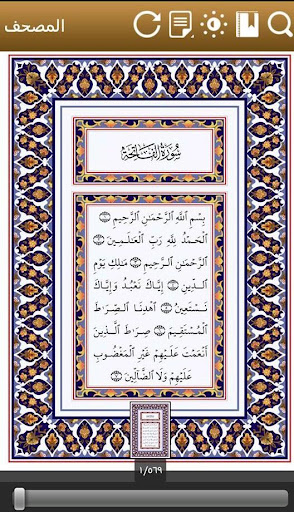 المصحف
سورة الفاتحة
بِسْمِ ٱللَّهِ ٱلرَّحْمَٰنِ ٱلرَّحِيمِ ۝
ٱلْحَمْدُ لِلَّهِ رَبِّ ٱلْعَٰلَمِينَ ۝
ٱلرَّحْمَٰنِ ٱلرَّحِيمِ ۝ مَٰلِكِ يَوْمِ
ٱلدِّينِ ۝ إِيَّاكَ نَعْبُدُ وَإِيَّاكَ
نَسْتَعِينُ ۝ ٱهْدِنَا ٱلصِّرَٰطَ
ٱلْمُسْتَقِيمَ ۝ صِرَٰطَ ٱلَّذِينَ
أَنْعَمْتَ عَلَيْهِمْ غَيْرِ ٱلْمَغْضُوبِ
عَلَيْهِمْ وَلَا ٱلضَّآلِّينَ ۝
١/٥٦٩